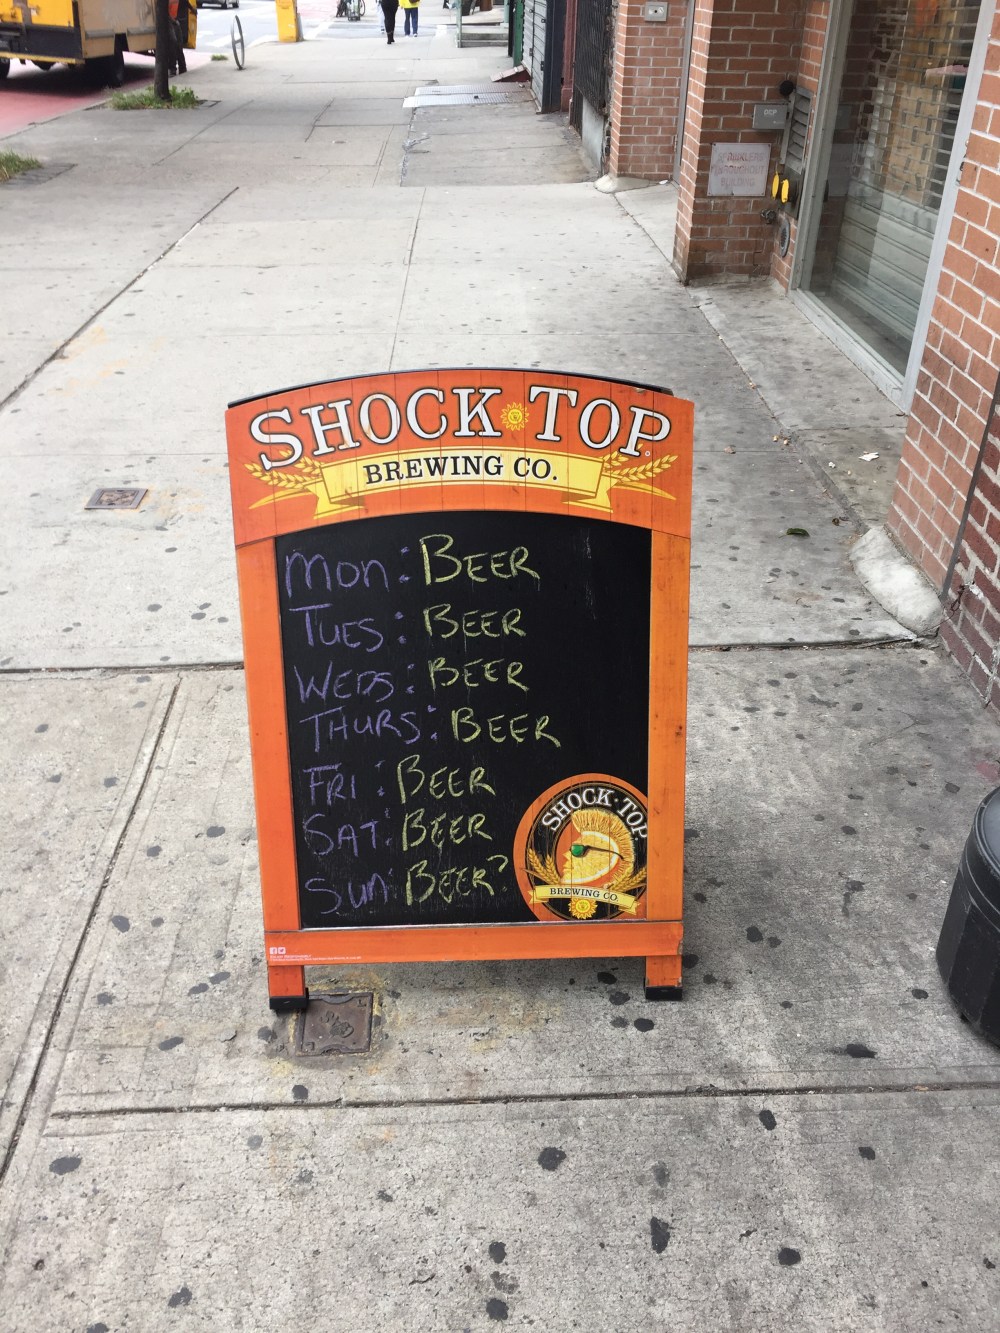 SHOCK TOP
BREWING CO.
Mon: BEER
TUES: BEER
WEDS: BEER
THURS: BEER
FRI: BEER
SAT: BEER
Sun: BEER?
SHOCK TOP
BREWING CO.